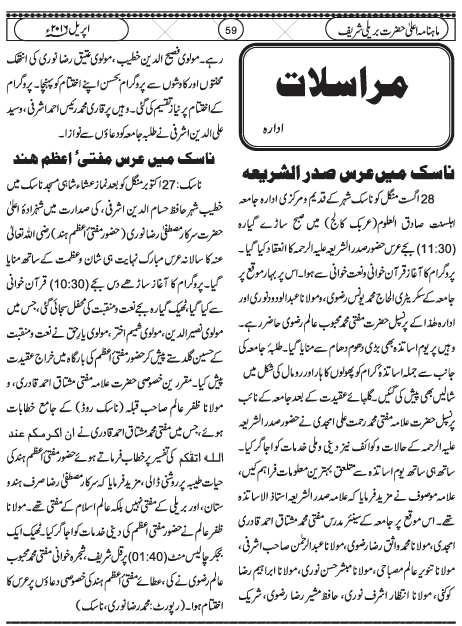 ماہنامہ اعلیٰ حضرت بریلی شریف
59
اپریل ۲۰۱۶ء
مراسلات
ادارہ
ناسک میں عرس صدر الشریعہ
28 اگست منگل کو ناسک شہر کے قدیم و مرکزی ادارہ جامعہ
اہلسنت صادق العلوم (عربک کالج) میں صبح ساڑے گیارہ
(11:30) بجے عرس حضور صدر الشریعہ علیہ الرحمہ کا انعقاد کیا گیا۔
پروگرام کا آغاز قرآن خوانی و نعت خوانی سے ہوا۔ اس پر بہار موقع پر
جامعہ کے سکریٹری الحاج محمد یونس رضوی، و مولانا عبدالودود نوری اور
ادارہ ھذا کے پرنسپل حضرت مفتی محمد محبوب عالم رضوی حاضر رہے۔
وہیں پر یوم اساتذہ بھی بڑی دھوم دھام سے منایا گیا۔ طلبۂ جامعہ کی
جانب سے جملہ اساتذۂ کرام کو پھولوں کا ہار اور رومال کی شکل میں
شالیں بھی پیش کی گئیں۔ گلہائے عقیدت کے بعد جامعہ کے نائب
پرنسپل حضرت علامہ مفتی محمد رحمت علی امجدی نے حضور صدر الشریعہ
علیہ الرحمہ کے حالات و کوائف نیز دینی و ملی خدمات کو اجاگر کیا۔
ساتھ ہی ساتھ یوم اساتذہ سے متعلق بہترین معلومات فراہم کیں،
علامہ موصوف نے مزید فرمایا کہ علامہ صدر الشریعہ استاذ الاساتذہ
تھے۔ اس موقع پر جامعہ کے سینئر مدرس مفتی محمد مشتاق احمد قادری
امجدی، مولانا محمد واثق رضا رضوی، مولانا عبدالرحمٰن صاحب اشرفی،
مولانا تنویر عالم مصباحی، مولانا مبشر حسن نوری، مولانا ابراہیم رضا
کوکنی، مولانا انتظار اشرف نوری، حافظ مشیر رضا رضوی، شریک
رہے۔ مولوی فصیح الدین خطیب، مولوی عتیق رضا نوری کی انتھک
محنتوں اور کاوشوں سے پروگرام بحسن اپنے اختتام کو پہنچا۔ پروگرام
کے اختتام پر نیاز تقسیم کی گئی۔ وہیں پر قاری محمد رئیس احمد اشرفی، و سید
علی الدین اشرفی نے طلبہ جامعہ کو دعاؤں سے نوازا۔
ناسک میں عرس مفتیٔ اعظم ھند
ناسک: 27 اکتوبر منگل کو بعد نماز عشاء شاہی مسجد ناسک میں
خطیب شہر حافظ حسام الدین اشرفی، کی صدارت میں شہزادۂ اعلیٰ
حضرت سرکار مصطفیٰ رضا نوری (حضور مفتیٔ اعظم ہند) رضی اللہ تعالیٰ
عنہ کا سالانہ عرس مبارک نہایت ہی شان و عظمت کے ساتھ منایا
گیا۔ پروگرام کا آغاز ساڑھے دس بجے (10:30) قرآن خوانی
سے کیا گیا، ٹھیک گیارہ بجے نعت و منقبت کی محفل سجائی گئی، جس میں
مولوی نصیر الدین، مولوی شمیم اختر، مولوی یارحق نے نعت و منقبت
کے حسین گلدستے پیش کر حضور مفتیٔ اعظم کی بارگاہ میں خراج عقیدت
پیش کیا۔ مقررین خصوصی حضرت علامہ مفتی مشتاق احمد قادری، و
مولانا ظفر عالم صاحب قبلہ (ناسک روڈ) کے جامع خطابات
ہوئے، جس میں مفتی محمد مشتاق احمد قادری نے ان اکرمکم عند
اللہ اتقکم کی تفسیر پر خطاب فرماتے ہوئے حضور مفتیٔ اعظم ہند کی
حیات طیبہ پر روشنی ڈالی، مزید فرمایا کہ سرکار مصطفیٰ رضا صرف ہندو
ستان، اور بریلی کے مفتی نہیں بلکہ عالم اسلام کے مفتی تھے۔ مولانا
ظفر عالم نے حضور مفتیٔ اعظم کی دینی خدمات کو اجاگر کیا۔ ٹھیک ایک
بجکر چالیس منٹ (01:40) پر قل شریف، شجرہ خوانی مفتی محمد محبوب
عالم رضوی نے کی، عطائے مفتیٔ اعظم ہند کی خصوصی دعاؤں پر عرس کا
اختتام ہوا۔ (رپورٹ: محمد رضا نوری، ناسک)